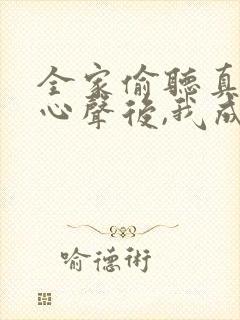 全家偷聽真
心聲後,我成
喻德術